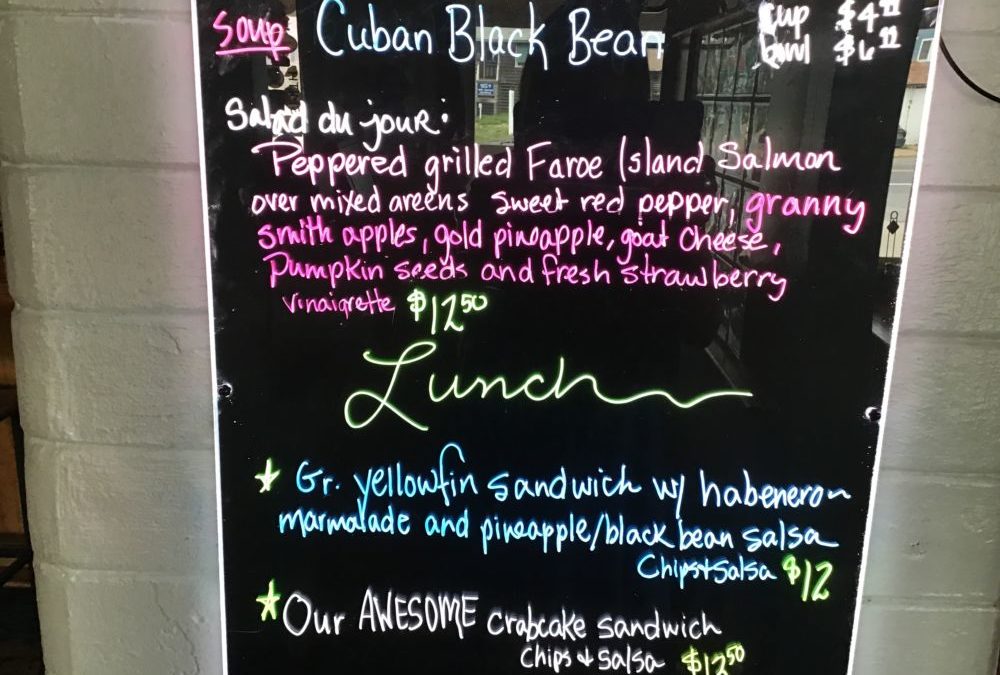 Soup Cuban Black Bean cup $4
bowl $6
Salad du jour:
Peppered grilled Faroe Island Salmon
over mixed areens sweet red pepper, granny
smith apples, gold pineapple, goat cheese,
Pumpkin seeds and fresh strawberry
vinaigrette $12.50
Lunch
Gr. yellowfin sandwich w/ habenero
marmalade and pineapple/black bean salsa
Chips+Salsa $12
Our AWESOME crabcake sandwich
Chips & Salsa $12.50